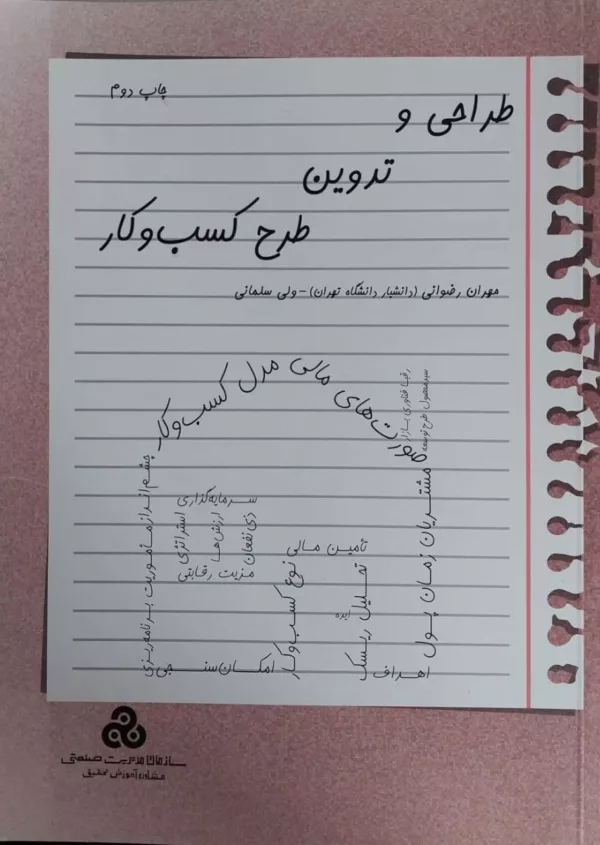 چاپ دوم
طراحی و
تدوین
طرح کسب‌وکار
مهران رضوانی (دانشیار دانشگاه تهران) - ولی سلمانی
صورت‌های مالی مدل کسب‌وکار
رقبا فناوری بازار
سبد محصول طرح توسعه
چشم‌انداز مأموریت برنامه‌ریزی
سرمایه‌گذاری
استراتژی
ارزش‌ها
ذی‌نفعان
مزیت رقابتی
تأمین مالی
نوع کسب‌وکار
تحلیل ریسک
ایده
مشتریان زمان پول
امکان‌سنجی
اهداف
سازمان مدیریت صنعتی
مشاوره آموزش تحقیق